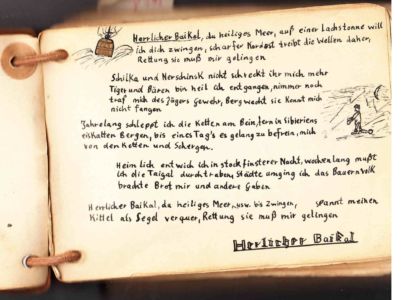 Herrlicher Baikal, du heiliges Meer, auf einer Lachstonne will
ich dich zwingen, scharfer Nordost treibt die Wellen daher,
Rettung sie muß mir gelingen
Schilka und Nerschinsk nicht schreckt ihr mich mehr
Tiger und Bären bin heil ich entgangen, nimmer noch
traf mich des Jägers Gewehr, Bergwacht sie konnt mich
nicht fangen
Jahrelang schleppt ich die Ketten am Bein, fern in Sibieriens
eiskalten Bergen, bis eines Tag's es gelang zu befrein, mich
von den Ketten und Schergen.
Heimlich entwich ich in stockfinsterer Nacht, wochenlang mußt
ich die Taigal durchtraben, Städte umging ich das Bauernvolk
brachte Brot mir und andere Gaben
Herrlicher Baikal, du heiliges Meer, usw. bis zwingen, spannt meinen
Kittel als Segel verquer, Rettung sie muß mir gelingen
Herlicher Baikal